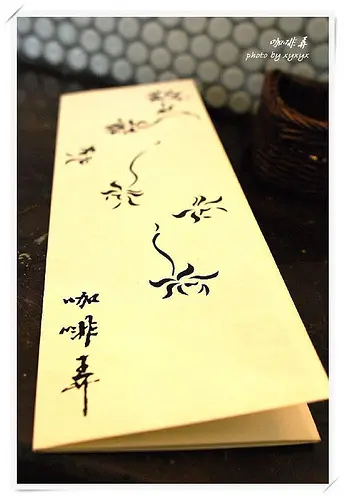 咖啡弄
photo by xyxyx
咖
啡
弄